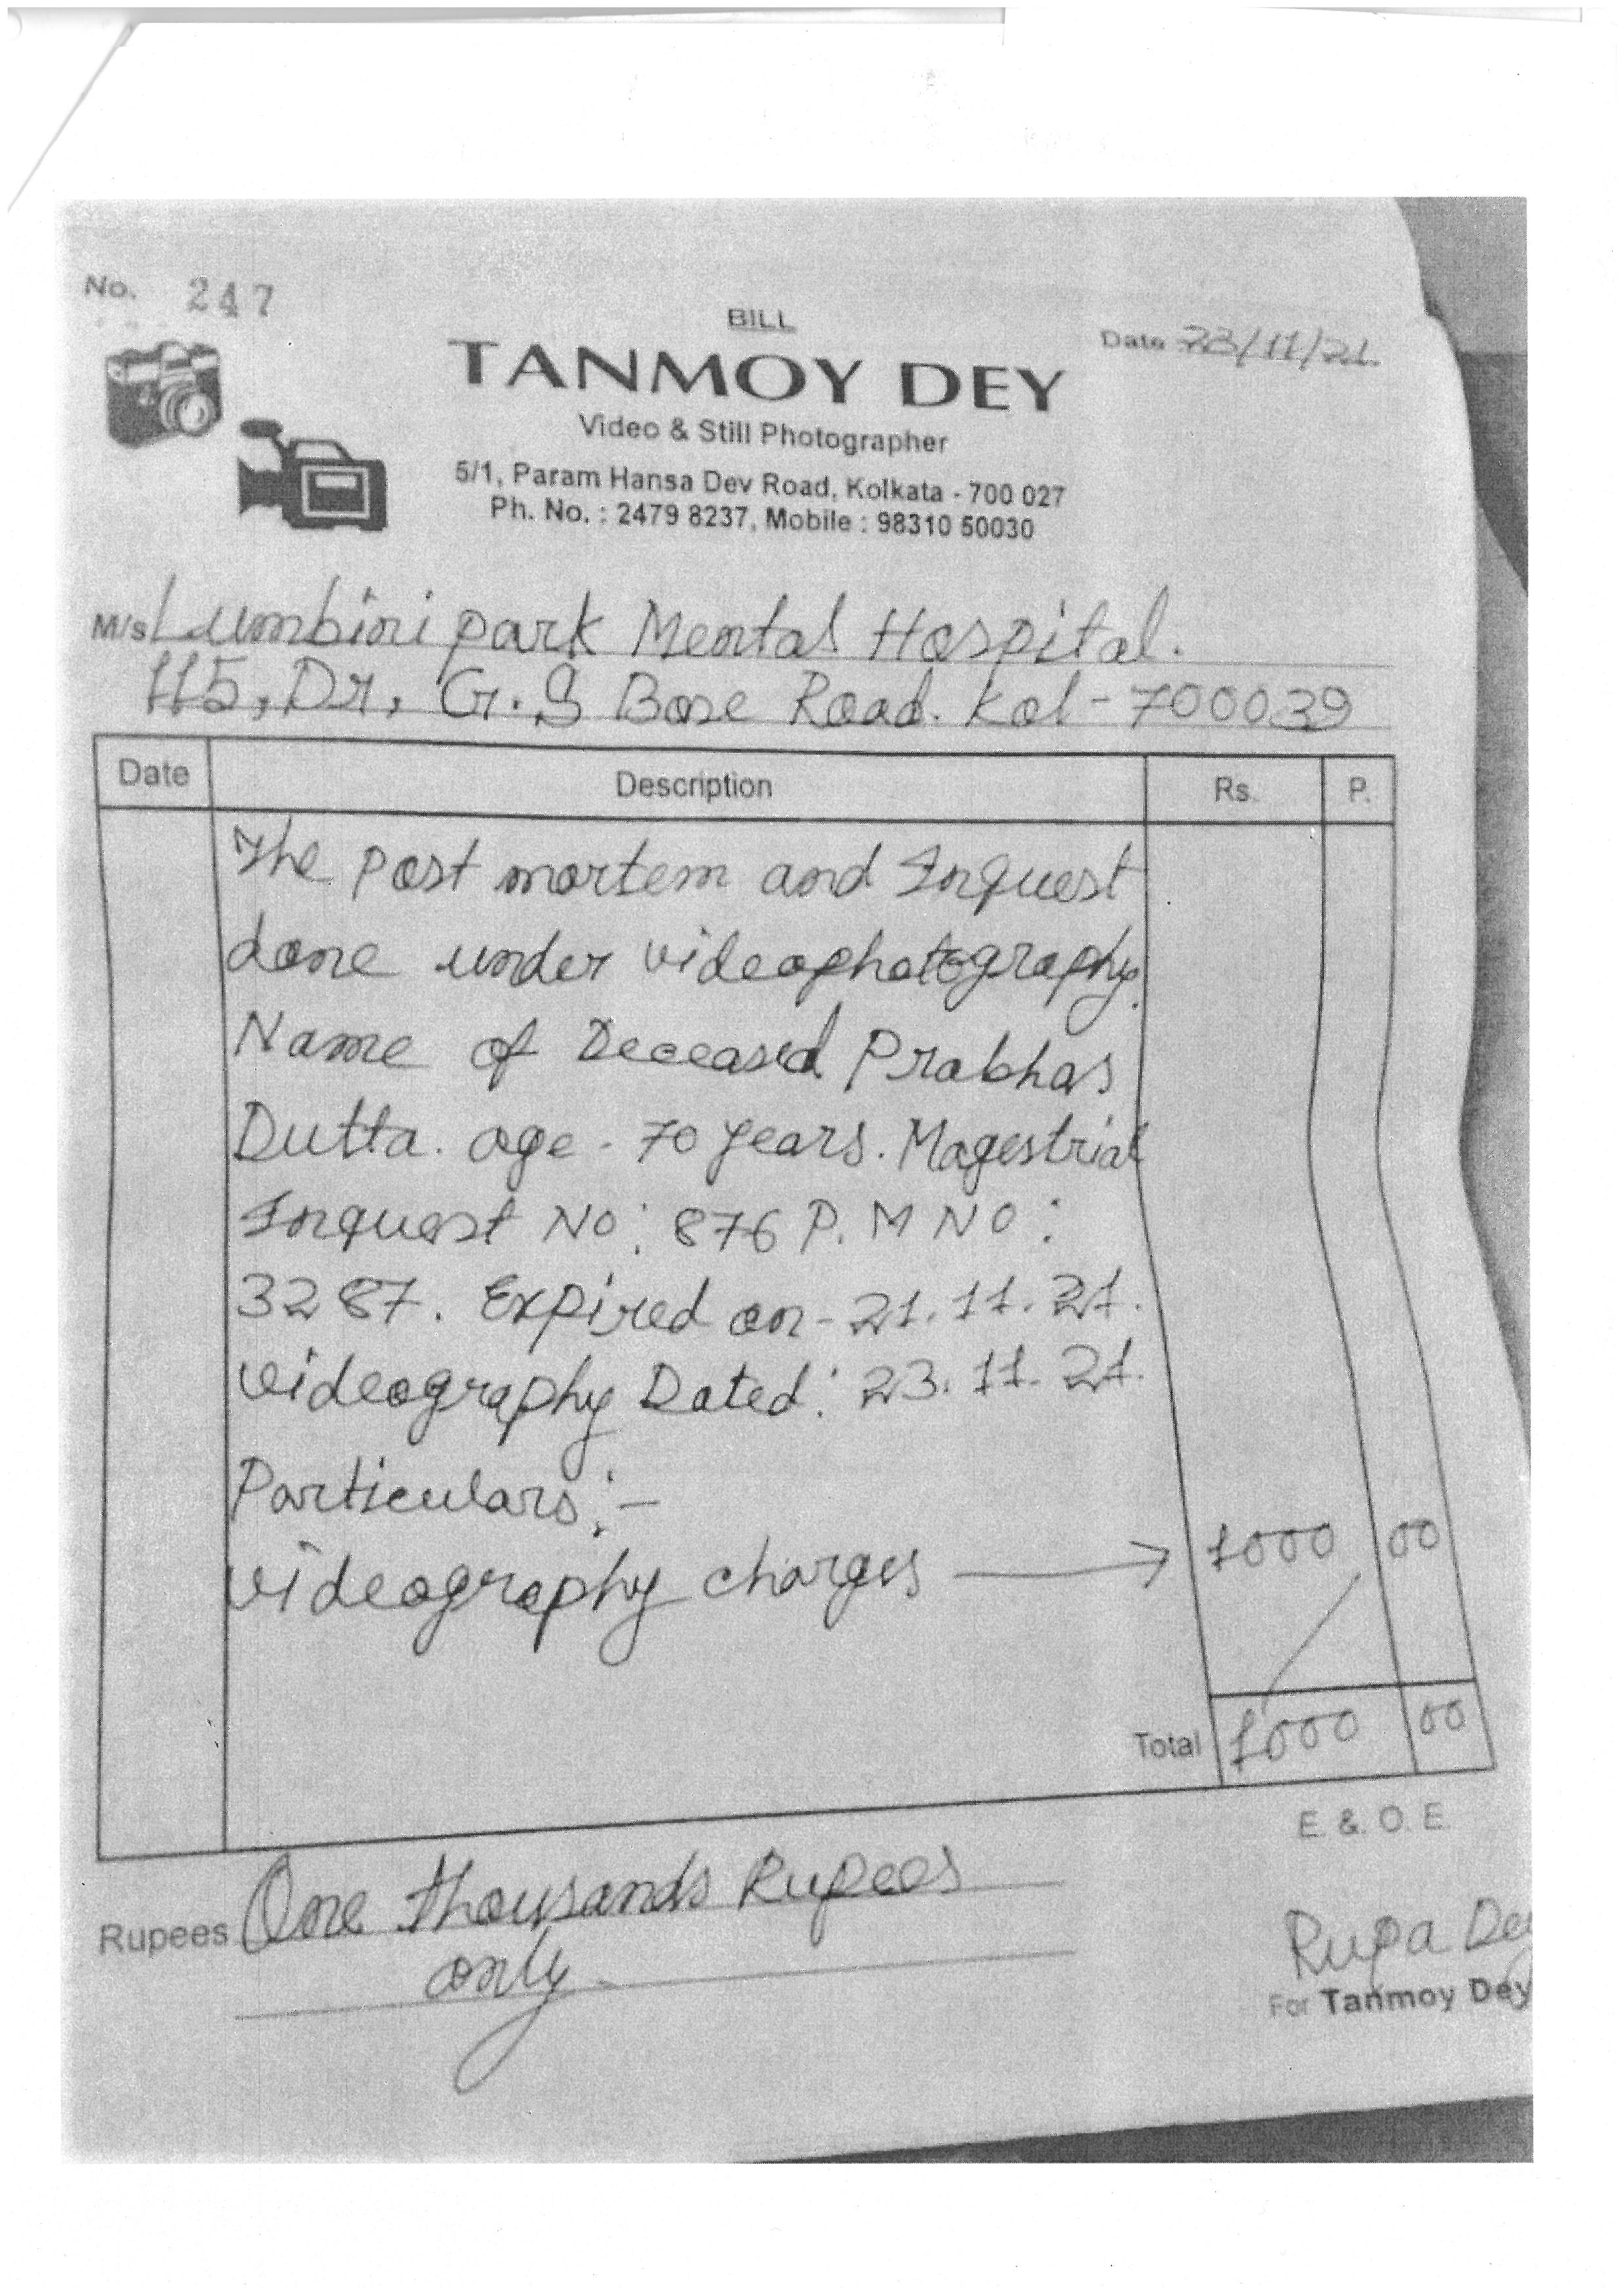 No. 247
BILL
Date 23/11/21
TANMOY DEY
Video & Still Photographer
5/1, Param Hansa Dev Road, Kolkata - 700 027
Ph. No. : 2479 8237, Mobile : 98310 50030
M/s Lumbini park Mental Hospital.
115, Dr, G.S Bose Road. Kol - 700039
Date Description Rs. P.
The post mortem and Inquest
done under videophotography.
Name of Deceased Prabhas
Dutta. age - 70 years. Magestrial
Inquest No: 876 P.M NO:
3287. Expired on - 21.11.21.
videography Dated: 23.11.21.
Particulars:-
videography charges → 1000 00
Total 1000 00
E. & O. E.
Rupees One thousands Rupees
only
Rupa Dey
For Tanmoy Dey